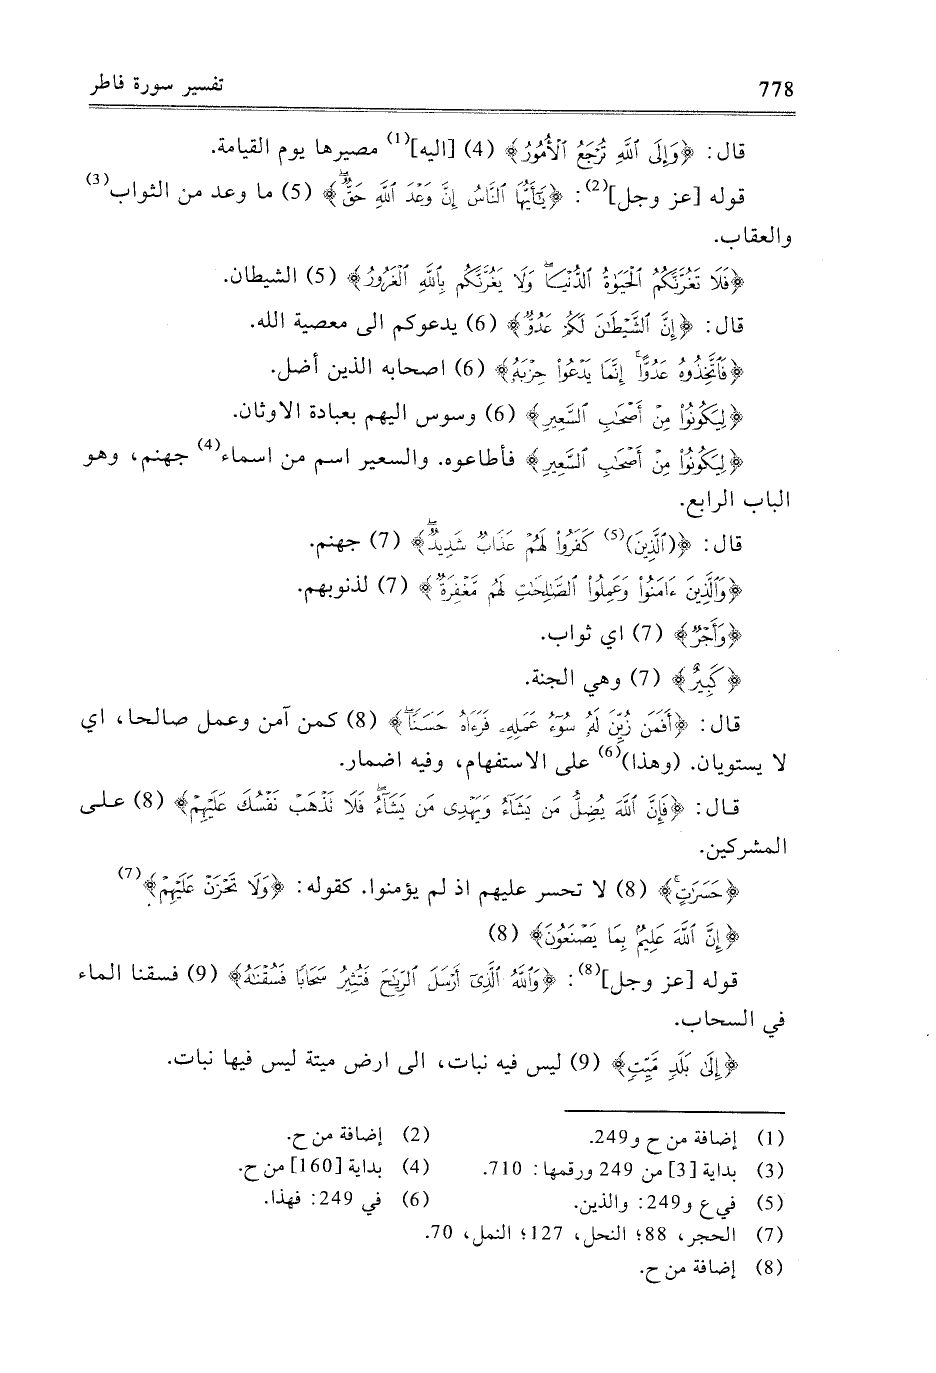 778 تفسير سورة فاطر
قال: ﴿وَإِلَى ٱللَّهِ تُرْجَعُ ٱلْأُمُورُ﴾ (4) [اليه](1) مصيرها يوم القيامة.
قوله [عز وجل](2): ﴿يَٰٓأَيُّهَا ٱلنَّاسُ إِنَّ وَعْدَ ٱللَّهِ حَقٌّۖ﴾ (5) ما وعد من الثواب(3)
والعقاب.
﴿فَلَا تَغُرَّنَّكُمُ ٱلْحَيَوٰةُ ٱلدُّنْيَاۖ وَلَا يَغُرَّنَّكُم بِٱللَّهِ ٱلْغَرُورُ﴾ (5) الشيطان.
قال: ﴿إِنَّ ٱلشَّيْطَٰنَ لَكُمْ عَدُوٌّ﴾ (6) يدعوكم الى معصية الله.
﴿فَٱتَّخِذُوهُ عَدُوًّاۚ إِنَّمَا يَدْعُوا۟ حِزْبَهُۥ﴾ (6) اصحابه الذين أضل.
﴿لِيَكُونُوا۟ مِنْ أَصْحَٰبِ ٱلسَّعِيرِ﴾ (6) وسوس اليهم بعبادة الاوثان.
﴿لِيَكُونُوا۟ مِنْ أَصْحَٰبِ ٱلسَّعِيرِ﴾ فأطاعوه. والسعير اسم من اسماء(4) جهنم، وهو
الباب الرابع.
قال: ﴿(ٱلَّذِينَ)(5) كَفَرُوا۟ لَهُمْ عَذَابٌ شَدِيدٌۖ﴾ (7) جهنم.
﴿وَٱلَّذِينَ ءَامَنُوا۟ وَعَمِلُوا۟ ٱلصَّٰلِحَٰتِ لَهُم مَّغْفِرَةٌ﴾ (7) لذنوبهم.
﴿وَأَجْرٌ﴾ (7) اي ثواب.
﴿كَبِيرٌ﴾ (7) وهي الجنة.
قال: ﴿أَفَمَن زُيِّنَ لَهُۥ سُوٓءُ عَمَلِهِۦ فَرَءَاهُ حَسَنًاۖ﴾ (8) كمن آمن وعمل صالحا، اي
لا يستويان. (وهذا)(6) على الاستفهام، وفيه اضمار.
قال: ﴿فَإِنَّ ٱللَّهَ يُضِلُّ مَن يَشَآءُ وَيَهْدِى مَن يَشَآءُۖ فَلَا نَذْهَبْ نَفْسُكَ عَلَيْهِمْ﴾ (8) على
المشركين.
﴿حَسَرَٰتٍۚ﴾ (8) لا تحسر عليهم اذ لم يؤمنوا. كقوله: ﴿وَلَا تَحْزَنْ عَلَيْهِمْ﴾(7)
﴿إِنَّ ٱللَّهَ عَلِيمٌۢ بِمَا يَصْنَعُونَ﴾ (8)
قوله [عز وجل](8): ﴿وَٱللَّهُ ٱلَّذِىٓ أَرْسَلَ ٱلرِّيَٰحَ فَتُثِيرُ سَحَابًا فَسُقْنَٰهُ﴾ (9) فسقنا الماء
في السحاب.
﴿إِلَىٰ بَلَدٍ مَّيِّتٍ﴾ (9) ليس فيه نبات، الى ارض ميتة ليس فيها نبات.
(1) إضافة من ح و249. (2) إضافة من ح.
(3) بداية [3] من 249 ورقمها: 710. (4) بداية [160] من ح.
(5) في ع و249: والذين. (6) في 249: فهذا.
(7) الحجر، 88؛ النحل، 127؛ النمل، 70.
(8) إضافة من ح.